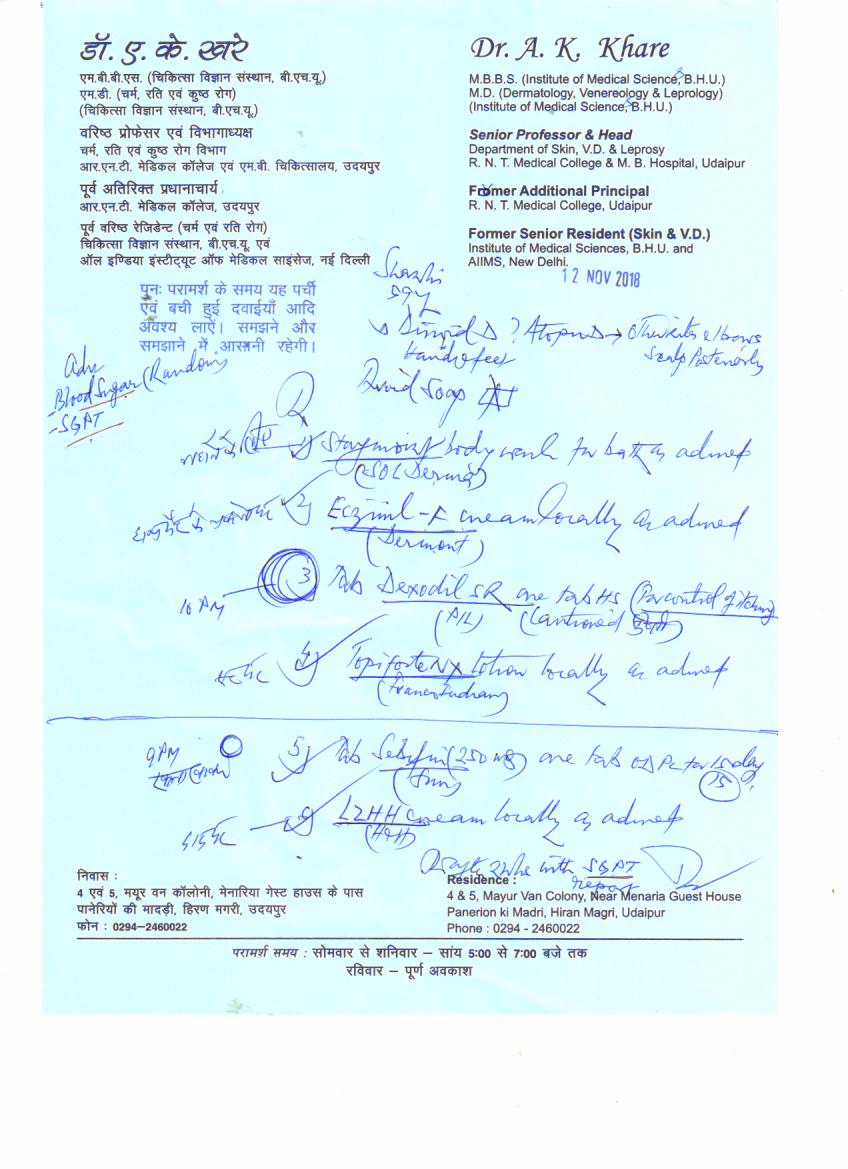 डॉ. ए. के. खरे
एम.बी.बी.एस. (चिकित्सा विज्ञान संस्थान, बी.एच.यू.)
एम.डी. (चर्म, रति एवं कुष्ठ रोग)
(चिकित्सा विज्ञान संस्थान, बी.एच.यू.)
वरिष्ठ प्रोफेसर एवं विभागाध्यक्ष
चर्म, रति एवं कुष्ठ रोग विभाग
आर.एन.टी. मेडिकल कॉलेज एवं एम.बी. चिकित्सालय, उदयपुर
पूर्व अतिरिक्त प्रधानाचार्य
आर.एन.टी. मेडिकल कॉलेज, उदयपुर
पूर्व वरिष्ठ रेजिडेन्ट (चर्म एवं रति रोग)
चिकित्सा विज्ञान संस्थान, बी.एच.यू. एवं
ऑल इण्डिया इंस्टीट्यूट ऑफ मेडिकल साइंसेज, नई दिल्ली
Dr. A. K. Khare
M.B.B.S. (Institute of Medical Sciences, B.H.U.)
M.D. (Dermatology, Venereology & Leprology)
(Institute of Medical Sciences, B.H.U.)
Senior Professor & Head
Department of Skin, V.D. & Leprosy
R. N. T. Medical College & M. B. Hospital, Udaipur
Former Additional Principal
R. N. T. Medical College, Udaipur
Former Senior Resident (Skin & V.D.)
Institute of Medical Sciences, B.H.U. and
AIIMS, New Delhi.
12 NOV 2018
पुनः परामर्श के समय यह पर्ची
एवं बची हुई दवाईयाँ आदि
अवश्य लाऐं। समझने और
समझाने में आसानी रहेगी।
Shashi
59y
Hand & feet
Scalp Posteriorly
Adv
Blood Sugar (Random)
- SGPT
Avoid Soap
1) Staymoist body wash for bath as advised
2) Eczimil-F cream locally as advised
(Dermont)
10 AM
3 Tab Dexodil SR one tab HS (For control of itching)
4) Topiforte NX lotion locally as advised
(Franco Indian)
9 AM
5) Tab Sebifin (250 mg) one tab OD PC for 15 day
(Sun)
15
6) L2HH cream locally as advised
(H&H)
with SGPT
report
निवास :
4 एवं 5, मयूर वन कॉलोनी, मेनारिया गेस्ट हाउस के पास
पानेरियों की मादड़ी, हिरण मगरी, उदयपुर
फोन : 0294-2460022
Residence :
4 & 5, Mayur Van Colony, Near Menaria Guest House
Panerion ki Madri, Hiran Magri, Udaipur
Phone : 0294 - 2460022
परामर्श समय : सोमवार से शनिवार – सांय 5:00 से 7:00 बजे तक
रविवार – पूर्ण अवकाश